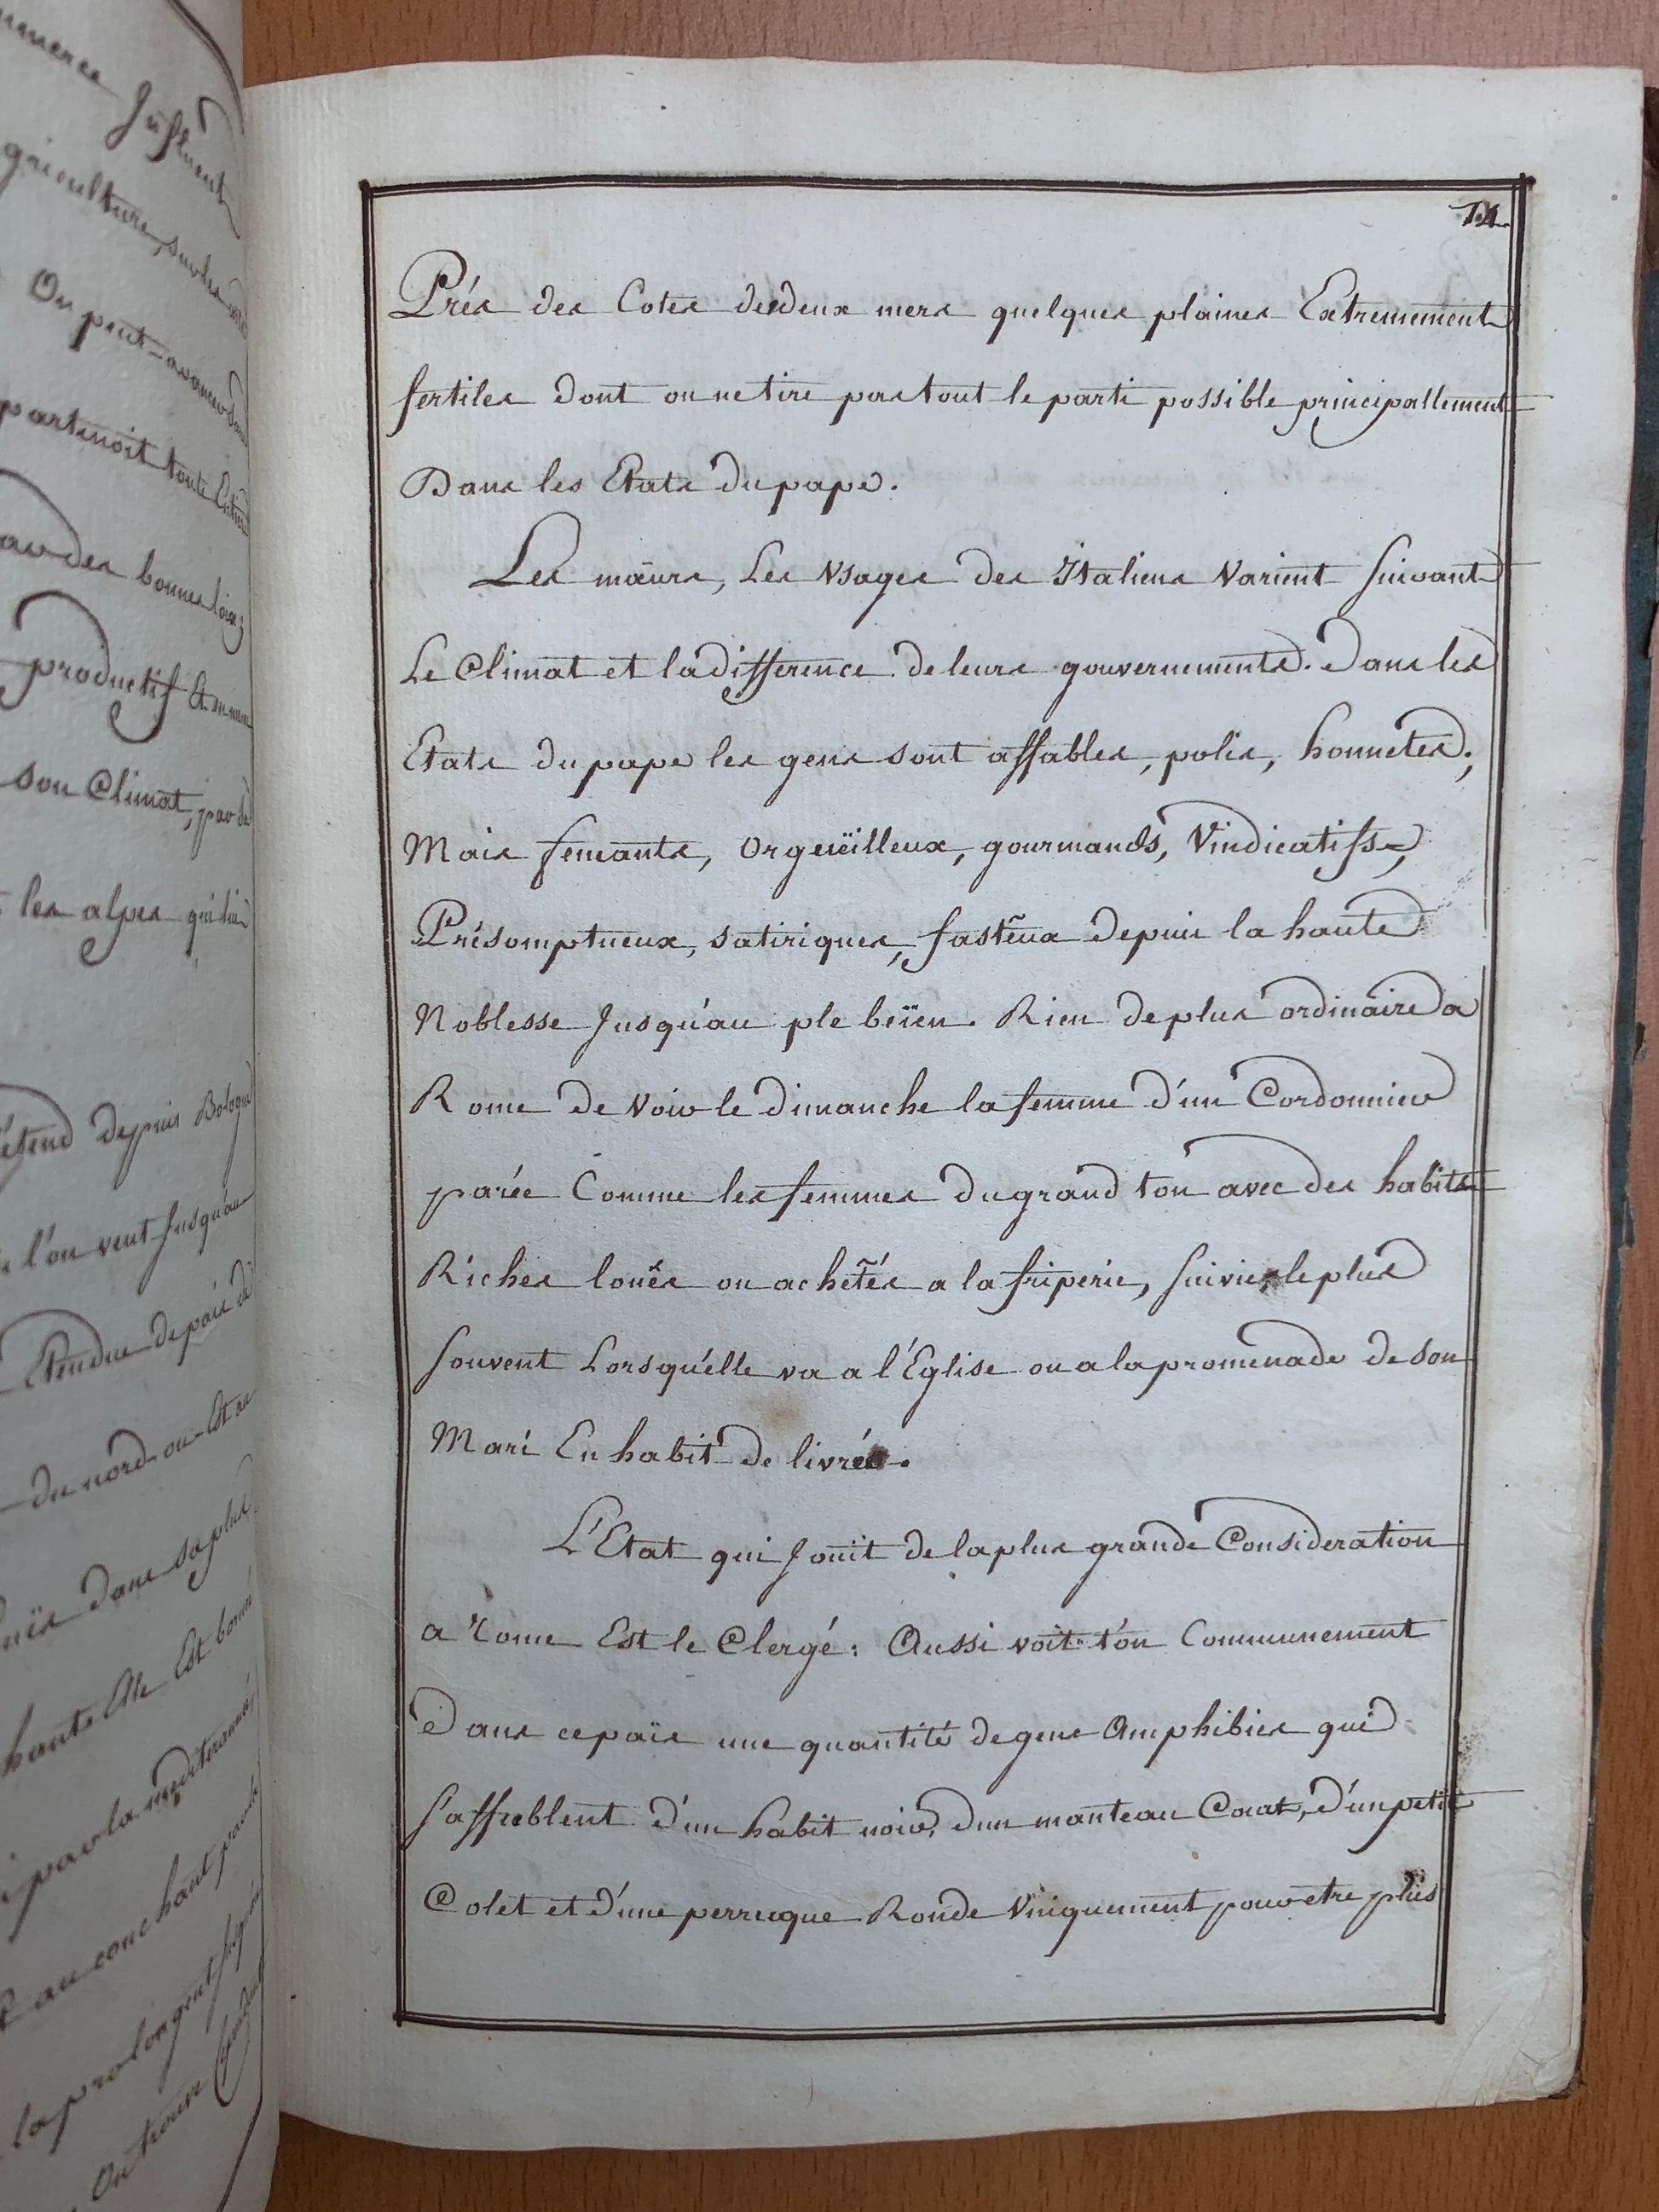 74.
Prés des Cotes des deux mers quelques plaines Extremement
fertiles dont on ne tire pas tout le parti possible principallement
Dans les Etats du pape.
Les mœurs, Les Usages des Italiens Varient suivant
Le Climat et la difference de leurs gouvernements. Dans les
Etats du pape les gens sont affables, polis, honnetes;
Mais feneants, Orgeüeilleux, gourmands, Vindicatifs,
Présomptueux, satiriques, fasteux depuis la haute
Noblesse Jusqu'au ple beïen. Rien de plus ordinaire a
Rome de Voir le dimanche la femme d'un Cordonnier
parée Comme les femmes du grand ton avec des habits
Riches loués ou achetés a la friperie, suivie le plus
souvent Lorsqu'elle va a l'Eglise ou a la promenade de son
Mari En habit de livrée.
L'Etat qui Jouit de la plus grande Consideration
a rome Est le Clergé: Aussi voit-t'on Communement
Dans ce païs une quantité de gens Amphibies qui
s'affreblent d'un habit noir, d'un manteau Court, d'un petit
Colet et d'une perruque Ronde Uniquement pour etre plus
mmerce Influent
griculture, sur les
On peut avancer
partenoit toute Entiere
par des bonnes loix;
productif Et
son Climat, par
les alpes qui
étend depuis Bologne
l'on veut Jusqu'au
Etendue de païs
du nord-ou-Est au
dans sa plus
haute Elle Est bornée
par la mediterannée,
au couchant par
la prolongent
On trouve